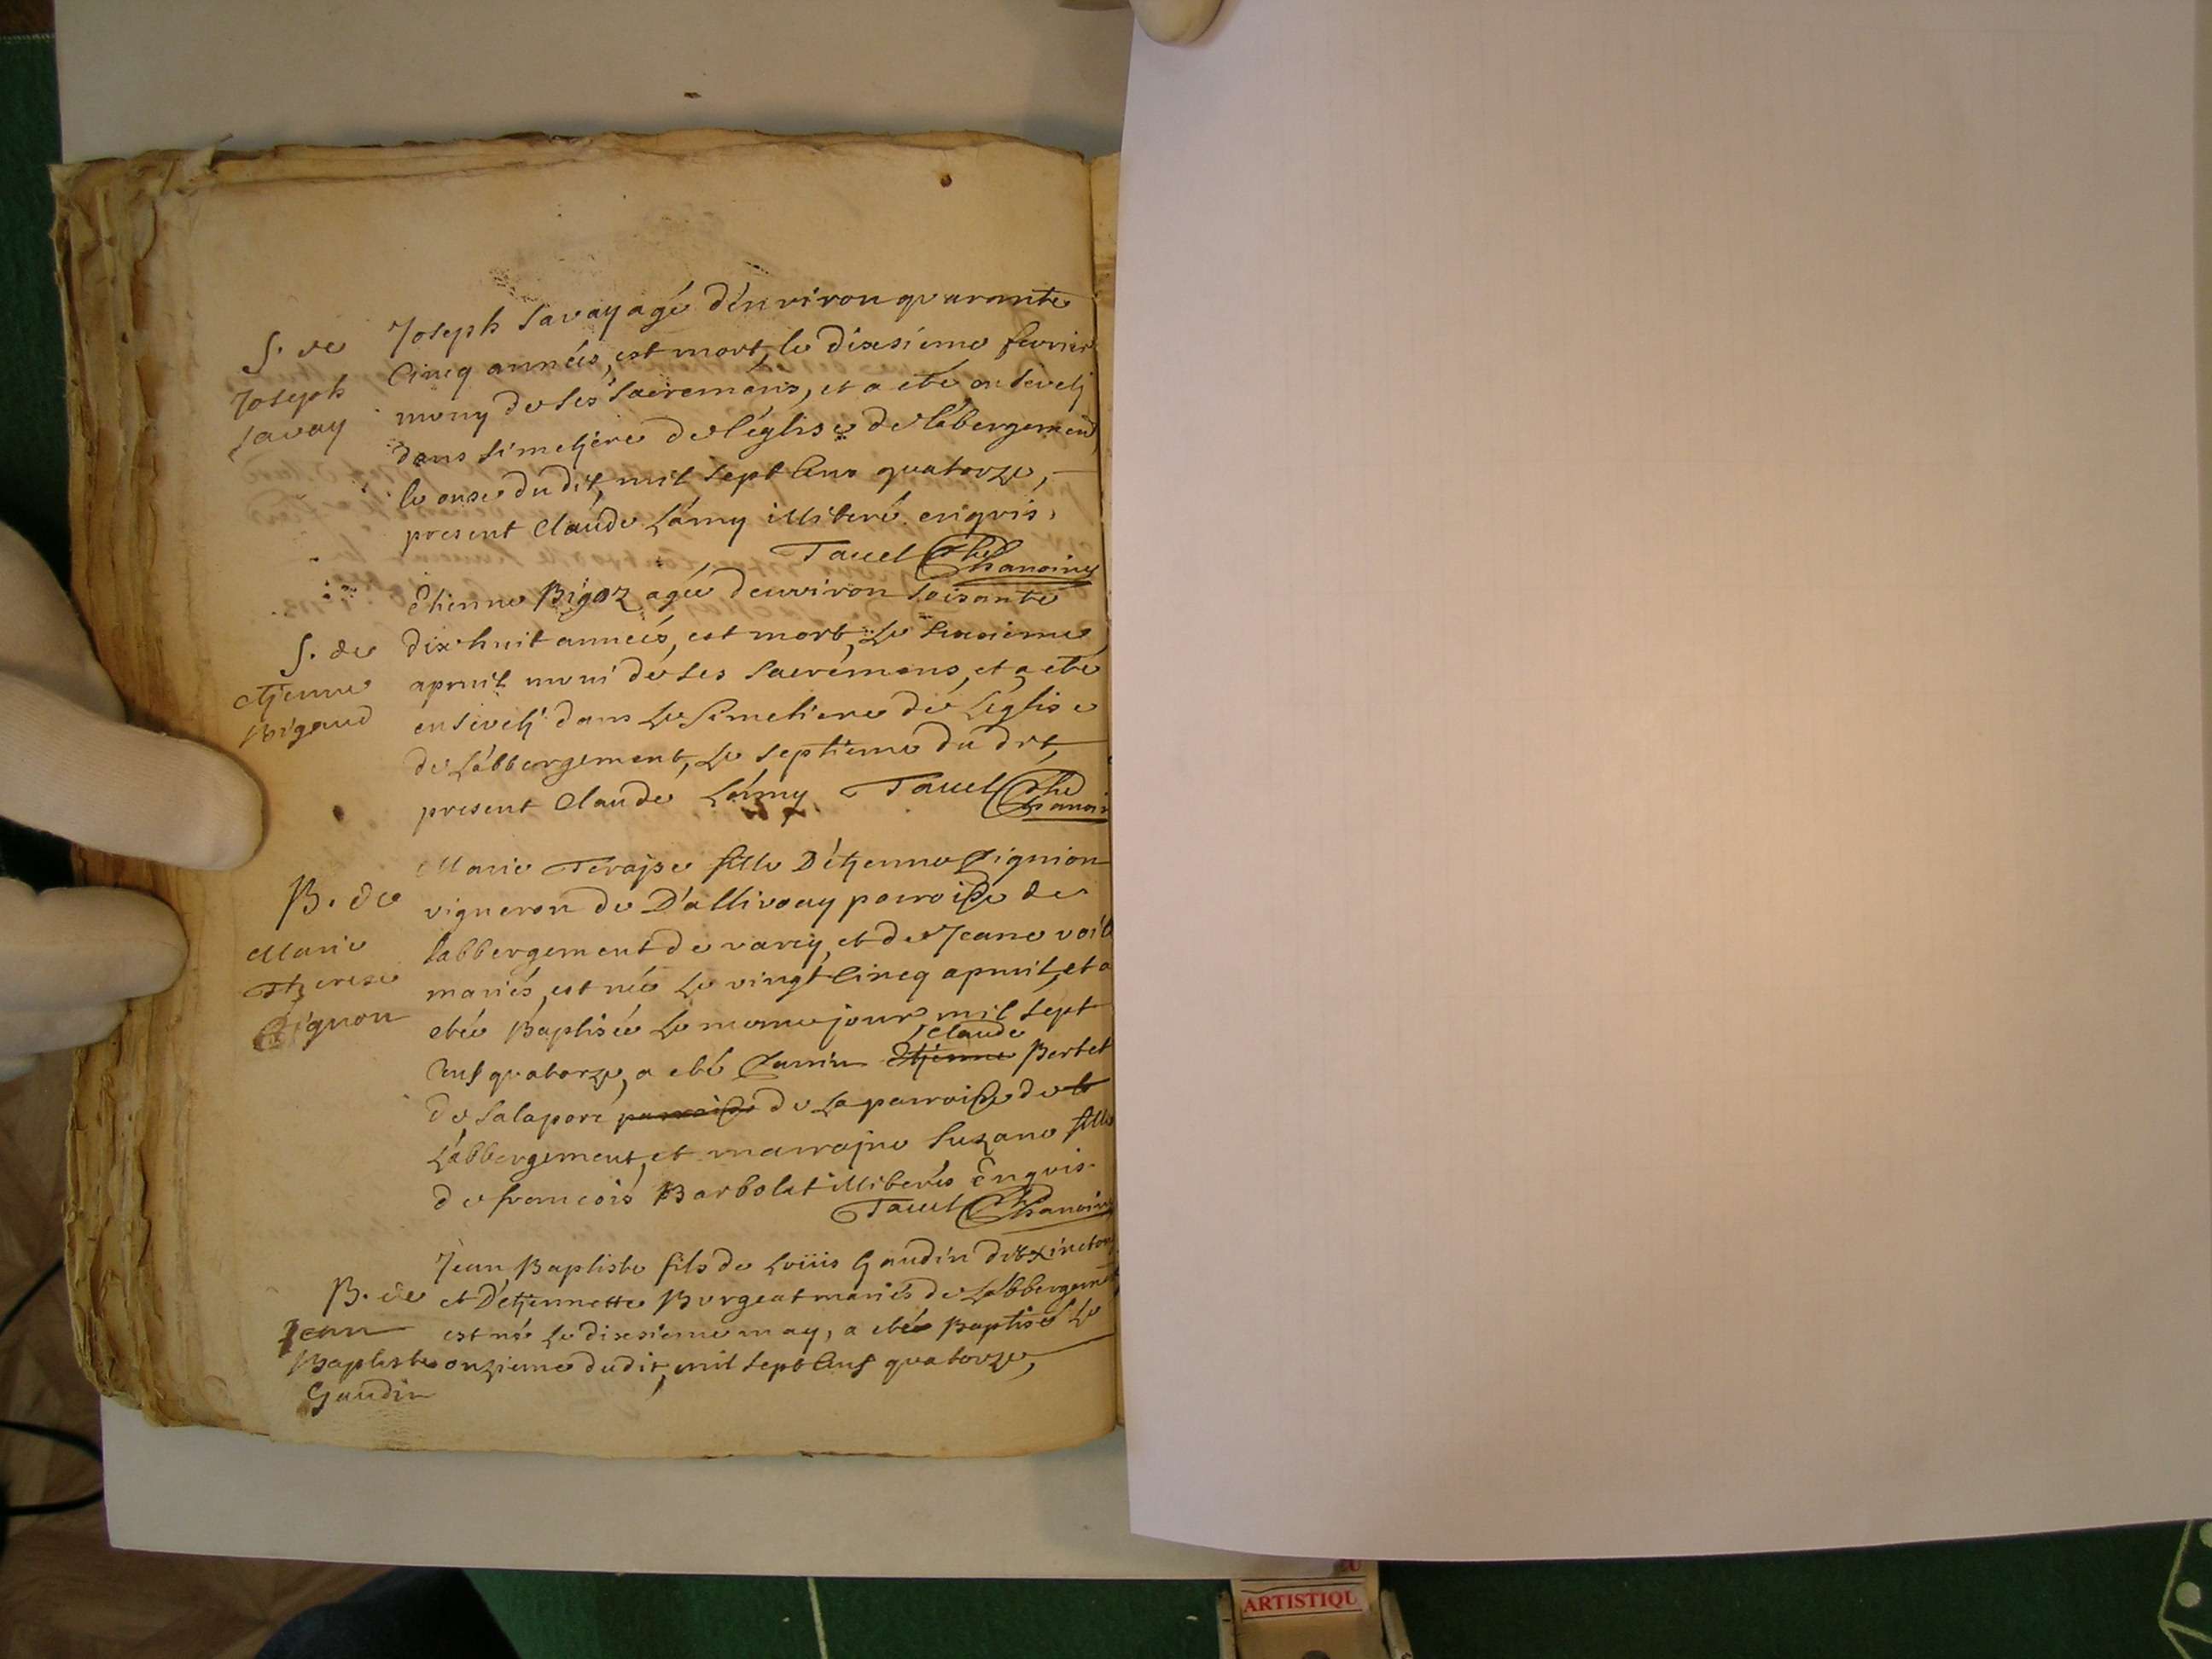 S. de
Joseph
Savay
Joseph Savay agé d'environ quarante
Cincq années, est mort, le dixsiéme fevrier
muny de ses Sacremens, et a eté ensevelj
dans simetjere de l'église de l'abergemend
le onse du dit, mil sept Cens quatorze,
present Claude Lámy illiteré enqvis.
Tavel Chanoine
S. de
etjenne
Bigaud
Etienne Bigoz agée d'environ soisante
dix huit années, est mort, Le Sixsieme
apvril muni de ses Sacrémens, et a eté
ensivelj dans Le Simetiere de L'église
de L'abbergement, Le septieme du dit,
present Claude Lámy Tavel Chanoi
B. de
Marie
Therese
Pignon
Marie Terajse fille D'étjenne Pignion
vigneron de D'allivoay parroisse de
l'abbergement de varey, et de Jeane
mariés, est née Le vingt Cincq apvril, et a
etée Baptisée Le meme jour mil sept
Claude
Cens quatorze, a eté Parrin Etjenne Bertet
de Salaport parroisse de La parroisse de
L'abbergement, et marrajne Suzane fille
de francois Barbolat illiterés Enqvis.
Tavel Chanoine
B. de
Jean
Baptiste
Gaudin
Jean Baptiste fils de Loüis Gaudin dit
et D'etjennette Burgeat mariés de L'abbergem
est né Le dixsieme may, a eté Baptisé Le
onzieme dudit, mil sept Cens quatorze,
ARTISTIQU